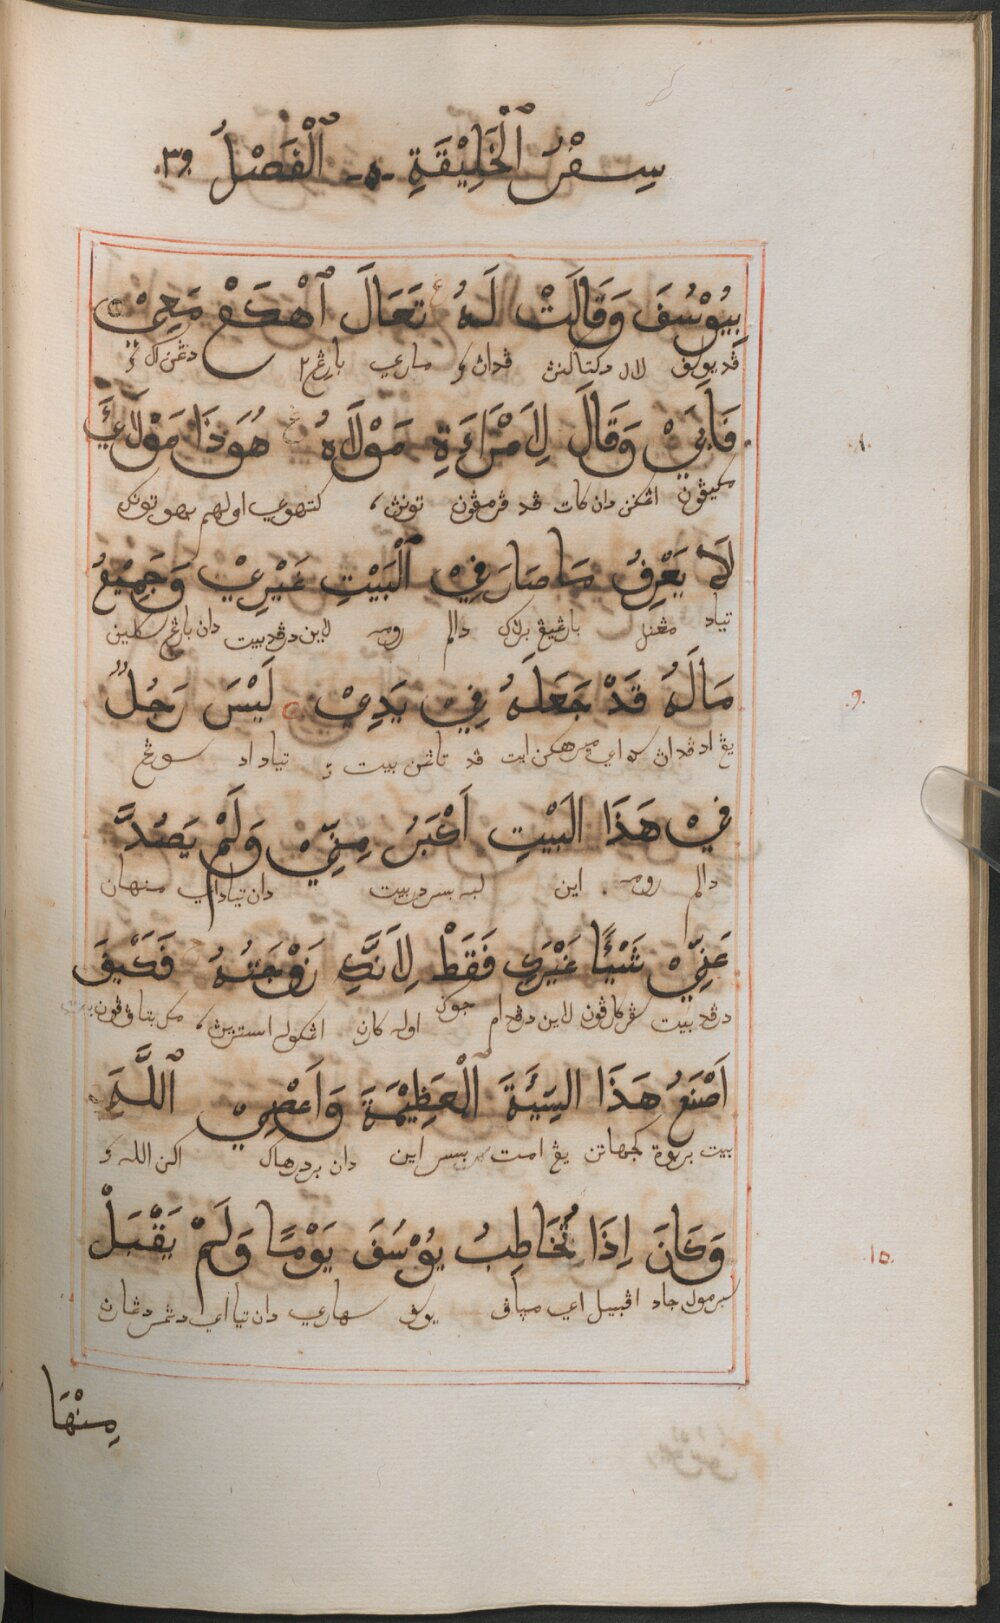 سِفْرُ ٱلْخَلِيْقَةِ -ه- ٱلْفَصْلُ ٣٩.
بِيُوْسُفَ وَقَالَتْ لَهُ تَعَالَ ٱهْكَعْ مَعِيْ
ڤد يوسف لالو دكتاكنڽ ڤداڽ ماري بارڠ٢ دڠن اكو
فَأَبَيْ وَقَالَ لِاَمْرَاَءَةِ مَوْلَاهُ هُوَذَا مَوْلَايَ
٨.
مكيڤون اڠكن دان كات ڤد ڤرمڤون تونڽ، كتهوي اولهم بهو توانكو
لَا يَعْرِفُ مَا صَارَ فِيْ ٱلْبَيْتِ غَيْرِيْ وَجَمِيْعُ
تياد مڠنل بارڠيڠ برلاكو دالم رومه لاين درڤد بيت دان بارڠ سكلين
مَالَهُ قَدْ جَعَلَهُ فِيْ يَدِيْ لَيْسَ رَجُلٌ
٩.
يڠ اد ڤداڽ سد اي مڽرهكن ايت ڤد تاڠن بيت تياد اد سورڠ
فِيْ هَذَا الْبَيْتِ أَكْبَرُ مِنِّيْ وَلَمْ يَصُدَّ
دالم رومه اين لبه بسر در بيت دان تياد اي منهان
عَنِّيْ شَيْئًا غَيْرَكِ فَقَطْ لِاَنَّكِ زَوْجَتُهُ فَكَيْفَ
درڤد بيت لاين درڤدام جوك اوله كارن اڠكوله استرين، مك بتاڤون
اَصْنَعُ هَذَا السَّيِّئَةَ ٱلْعَظِيْمَةَ وَاَعْصِيْ ٱللَّهَ
بيت بربوة كجهاتن يڠ امت بسر اين دان بردرهاك اكن الله
وَكَانَ اِذَا تُخَاطِبُ يُوْسُفَ يَوْمًا وَلَمْ يَقْبَلْ
١٥.
سبرمول جاد اڤبيل اي مڽاڤ يوسف سهاري دان تياد اي دڠر دڠارن
مِنْهَا